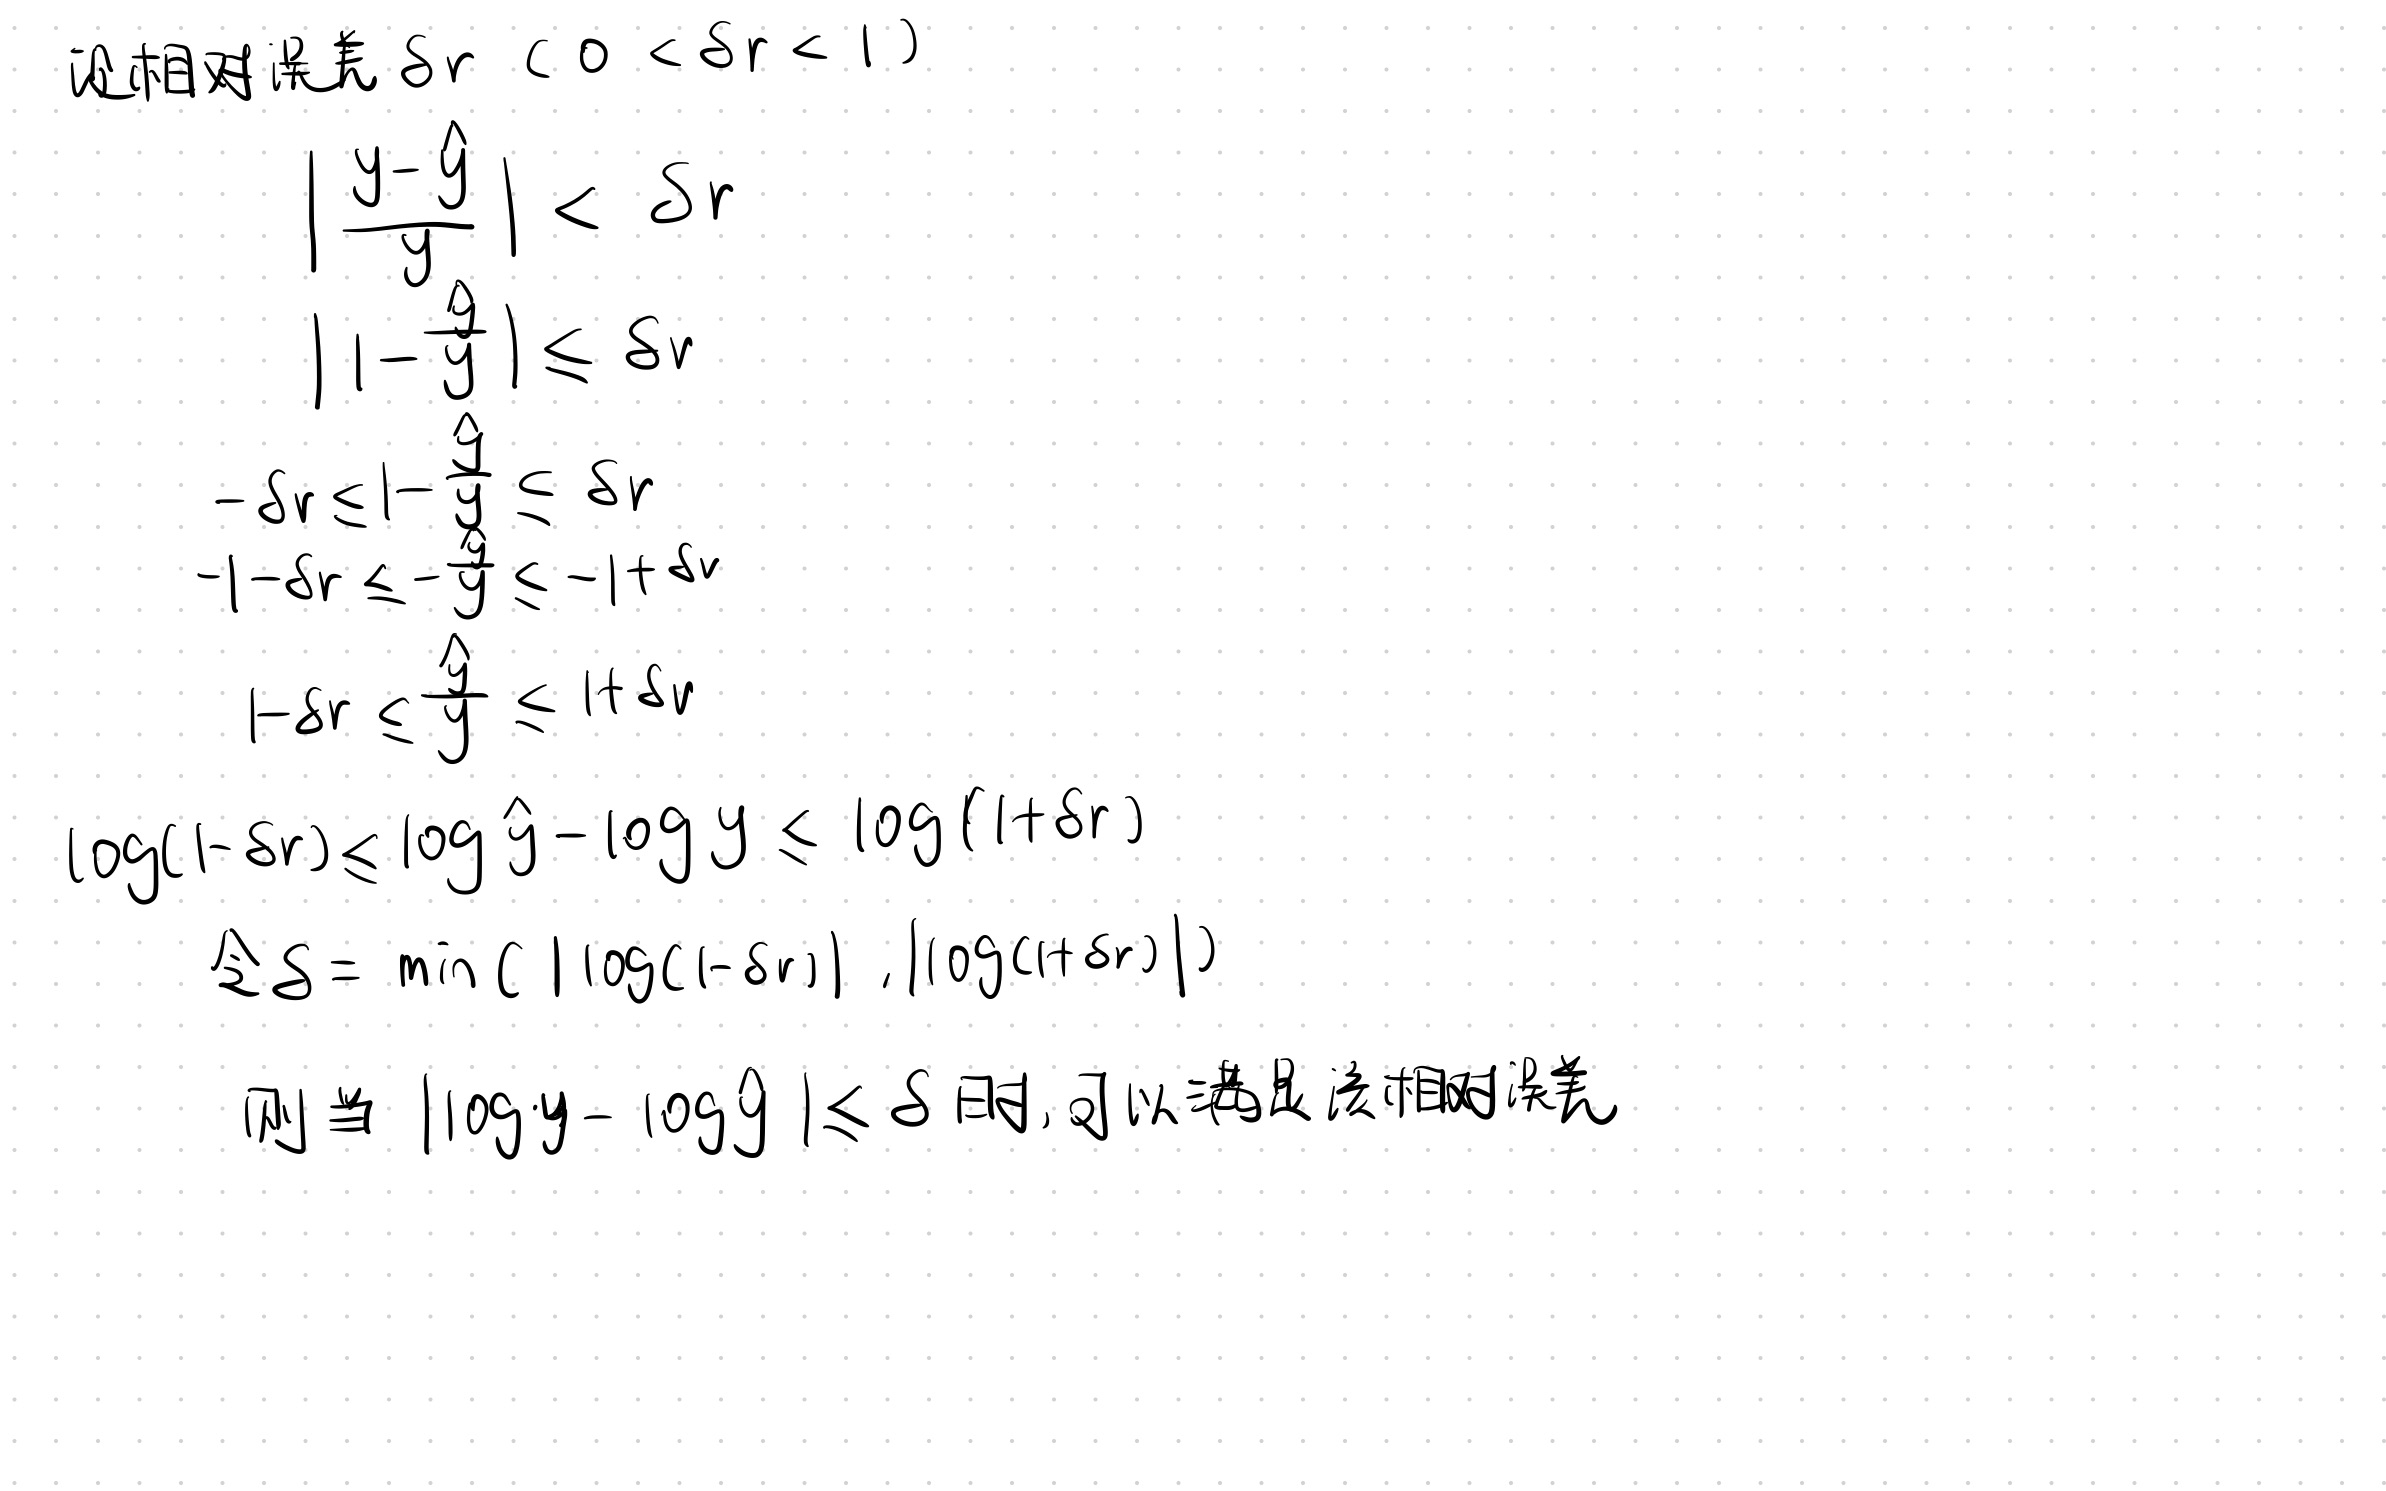 设相对误差 δr ( 0 < δr < 1 )
| (y - ŷ) / y | < δr
| 1 - ŷ/y | ≤ δr
-δr ≤ 1 - ŷ/y ≤ δr
-1-δr ≤ -ŷ/y ≤ -1+δr
1-δr ≤ ŷ/y ≤ 1+δr
log(1-δr) ≤ log ŷ - log y ≤ log(1+δr)
令δ = min( |log(1-δr)| , |log(1+δr)| )
则当 |log y - log ŷ| ≤ δ 时, 可以满足该相对误差